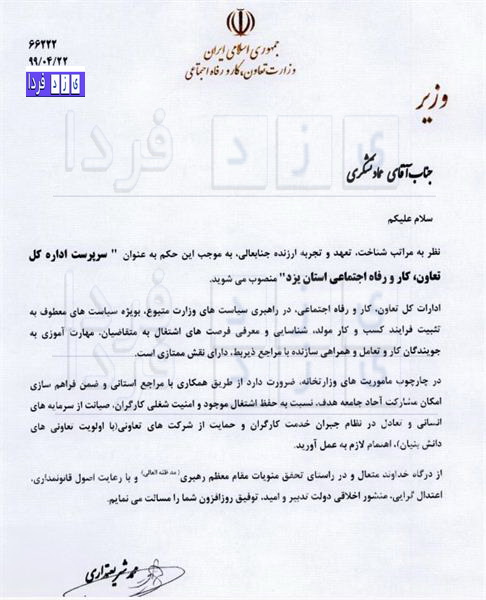 ۶۶۲۲۲
۹۹/۰۴/۲۲
ی زد فردا
جمهوری اسلامی ایران
وزارت تعاون، کار و رفاه اجتماعی
وزیر
ی زد فردا
جناب آقای عماد لشگری
سلام علیکم
نظر به مراتب شناخت، تعهد و تجربه ارزنده جنابعالی، به موجب این حکم به عنوان " سرپرست اداره کل
تعاون، کار و رفاه اجتماعی استان یزد" منصوب می شوید.
ادارات کل تعاون، کار و رفاه اجتماعی، در راهبری سیاست های وزارت متبوع، بویژه سیاست های معطوف به
تثبیت فرایند کسب و کار مولد، شناسایی و معرفی فرصت های اشتغال به متقاضیان، مهارت آموزی به
جویندگان کار و تعامل و همراهی سازنده با مراجع ذیربط، دارای نقش ممتازی است.
در چارچوب ماموریت های وزارتخانه، ضرورت دارد از طریق همکاری با مراجع استانی و ضمن فراهم سازی
امکان مشارکت آحاد جامعه هدف، نسبت به حفظ اشتغال موجود و امنیت شغلی کارگران، صیانت از سرمایه های
انسانی و تعادل در نظام جبران خدمت کارگران و حمایت از شرکت های تعاونی(با اولویت تعاونی های
دانش بنیان)، اهتمام لازم به عمل آورید.
از درگاه خداوند متعال و در راستای تحقق منویات مقام معظم رهبری(مد ظله العالی) و با رعایت اصول قانونمداری،
اعتدال گرایی، منشور اخلاقی دولت تدبیر و امید، توفیق روزافزون شما را مسالت می نمایم.
محمد شریعتمداری